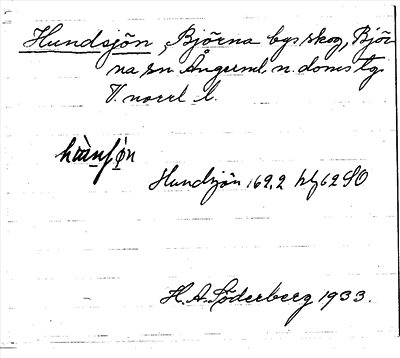 Hundsjön, Björna bys skog, Björ-
na sn Ångerml. n. doms tgs
V. norrl l.
Hundsjön 162,2 hbl 62 SO
H. A. Söderberg 1933.